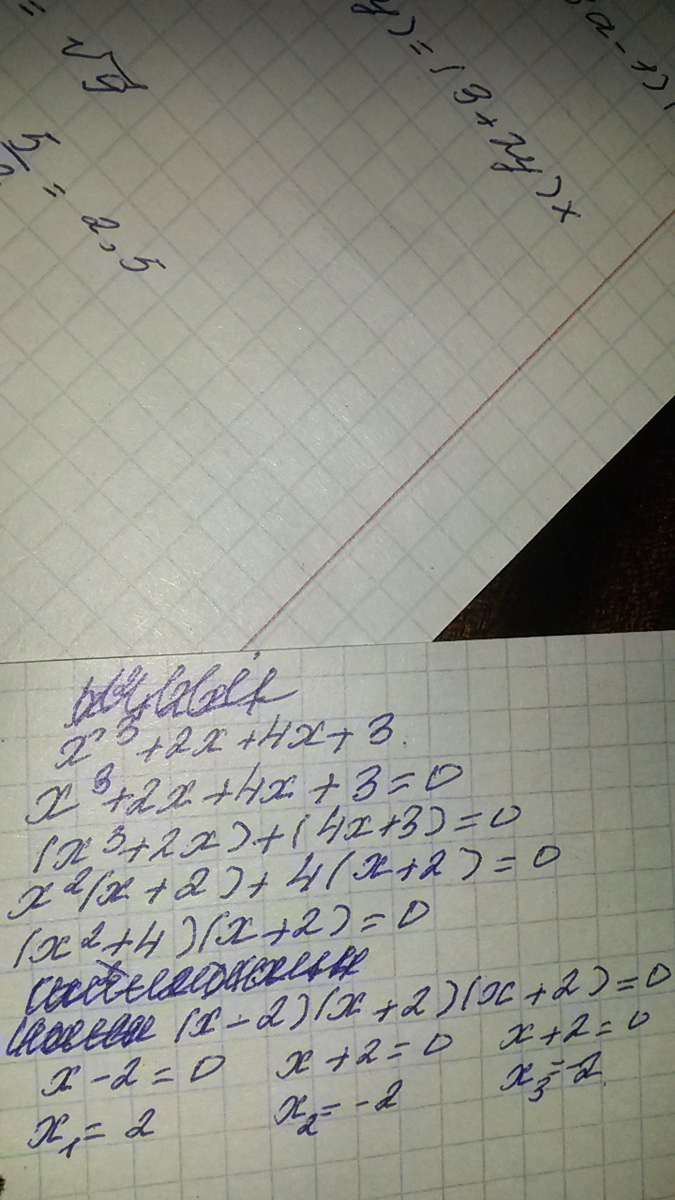 = √9
5/2 = 2,5
y) = (3 + 2y) x
a - 1)
x³ + 2x + 4x + 3.
x³ + 2x + 4x + 3 = 0
(x³ + 2x) + (4x + 3) = 0
x²(x + 2) + 4(x + 2) = 0
(x² + 4)(x + 2) = 0
(x - 2)(x + 2)(x + 2) = 0
x - 2 = 0 x + 2 = 0 x + 2 = 0
x₁ = 2 x₂ = -2 x₃ = -2